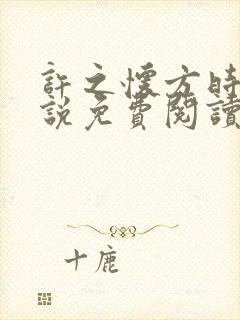 許之懷方時
說免費閱讀
十鹿